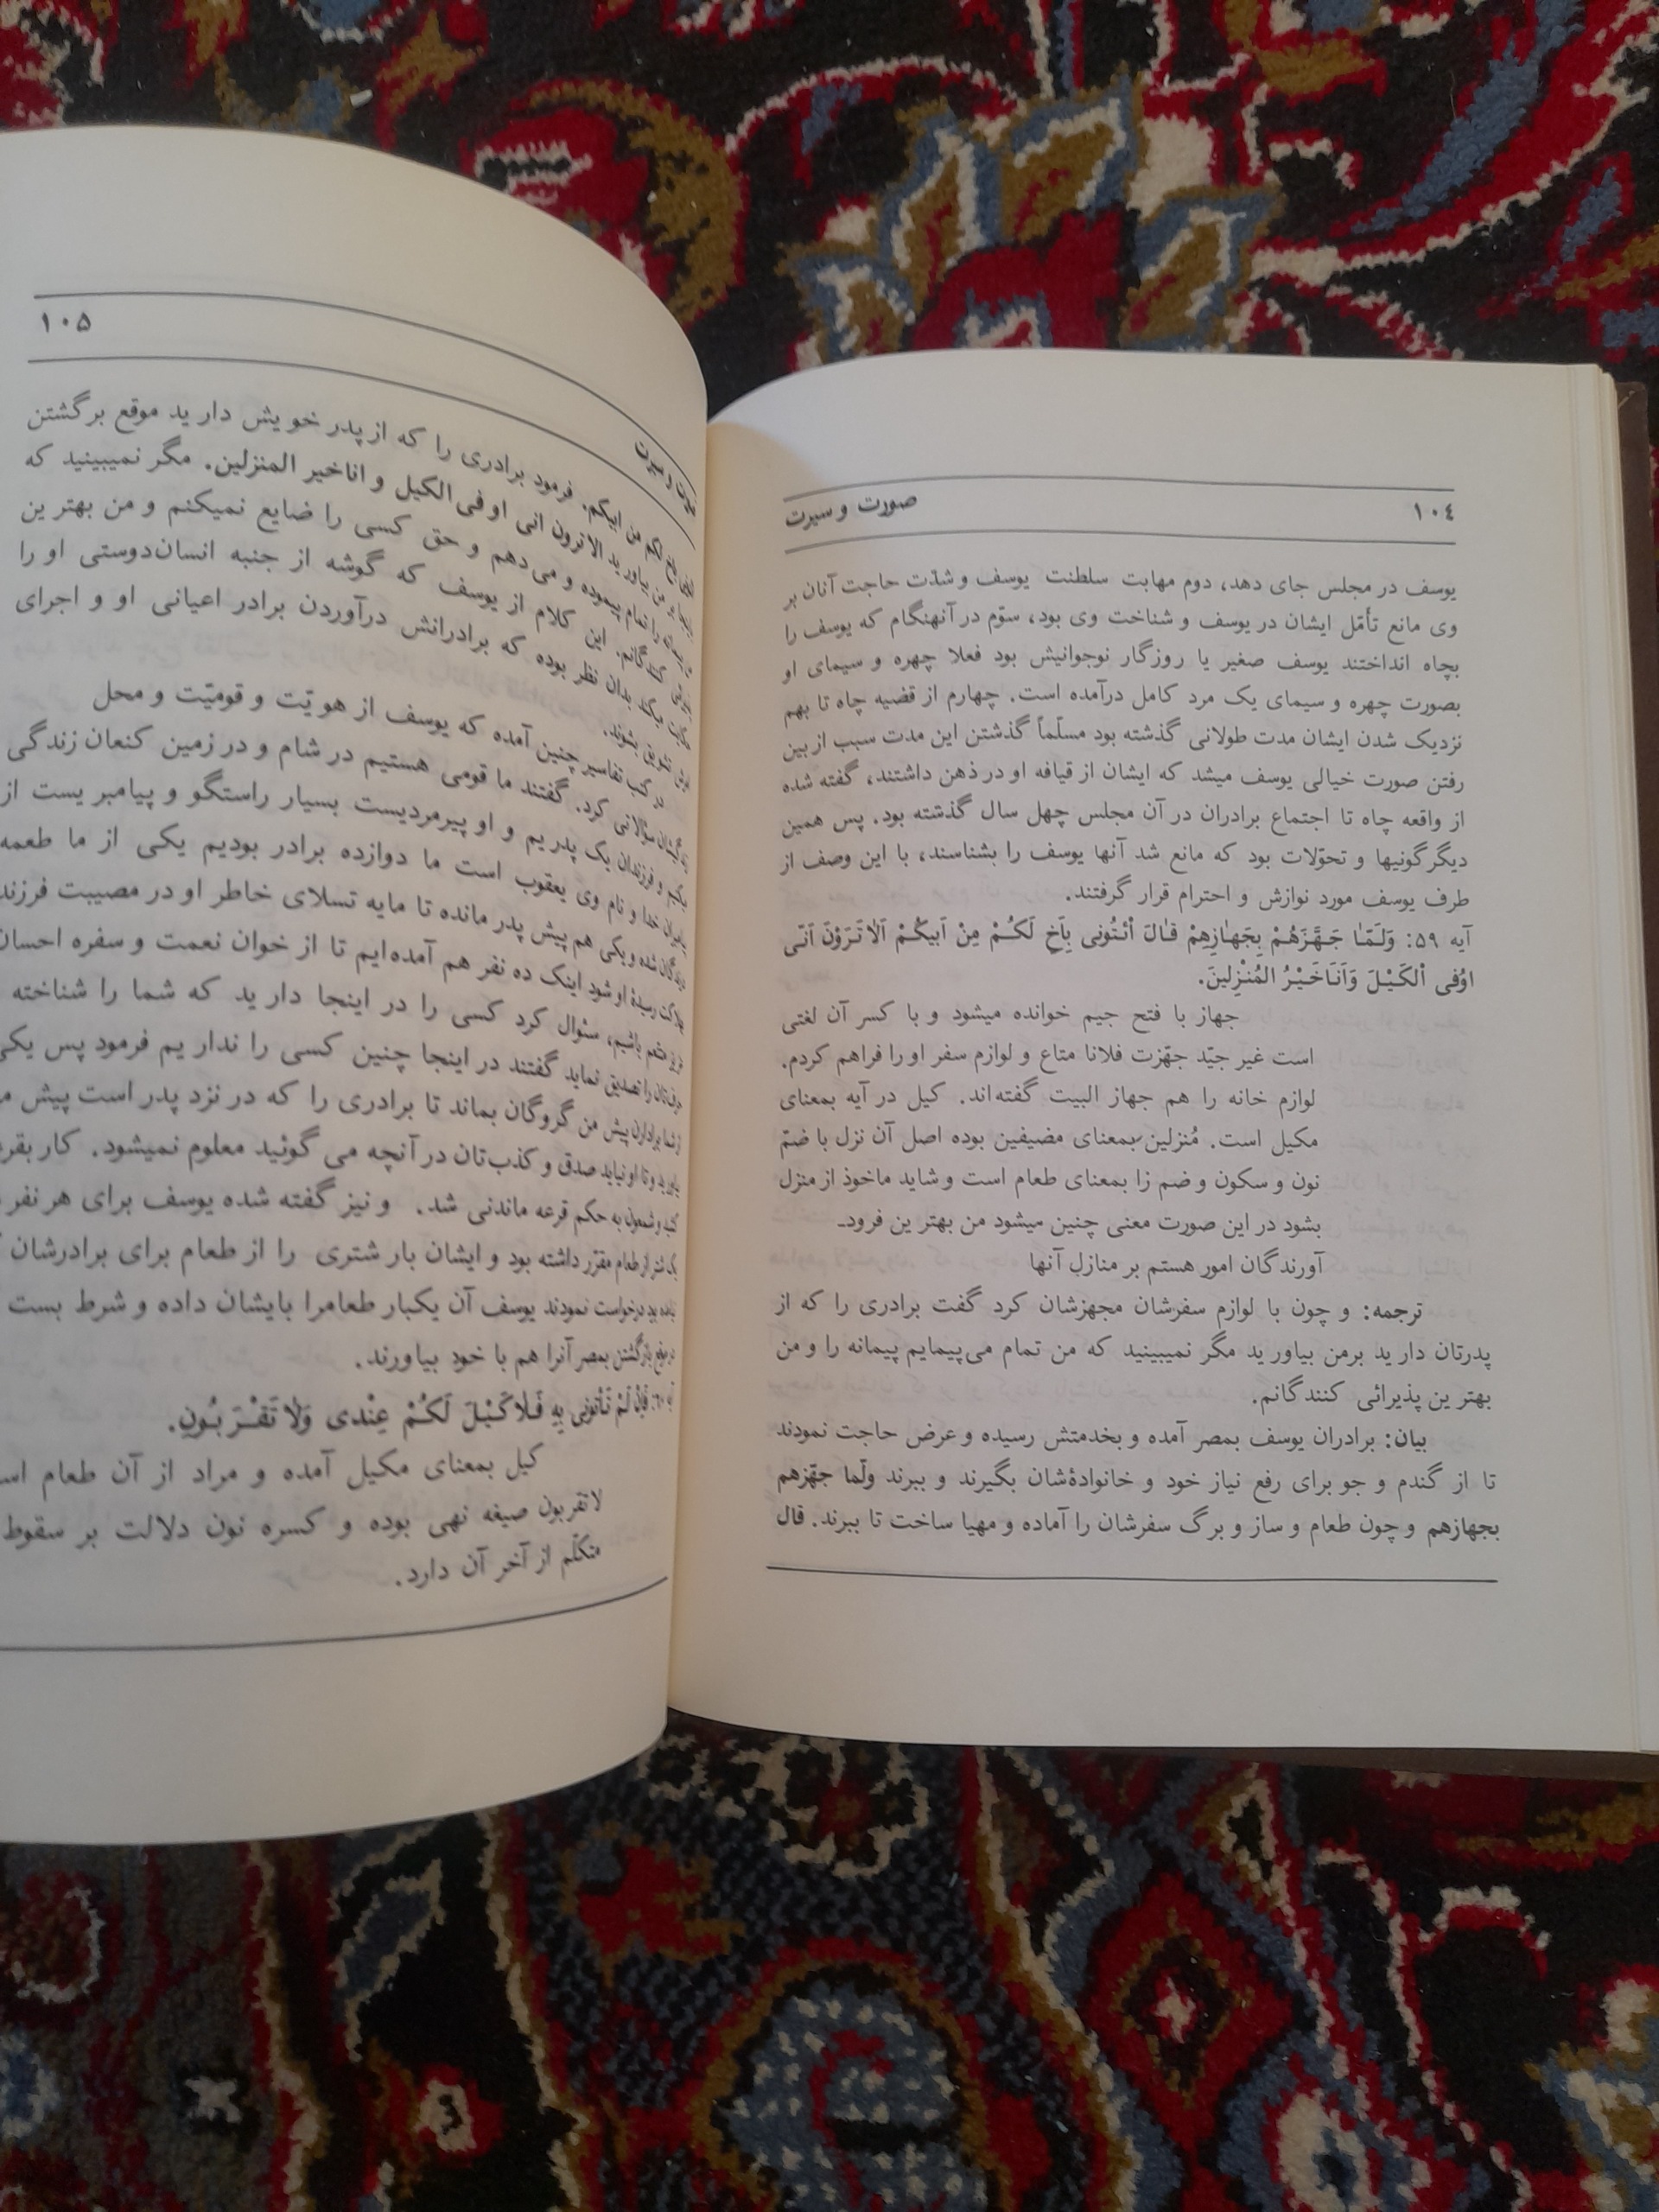 ۱۰٤
صورت و سیرت
یوسف در مجلس جای دهد، دوم مهابت سلطنت یوسف و شدّت حاجت آنان بر
وی مانع تأمّل ایشان در یوسف و شناخت وی بود، سوّم در آنهنگام که یوسف را
بچاه انداختند یوسف صغیر یا روزگار نوجوانیش بود فعلا چهره و سیمای او
بصورت چهره و سیمای یک مرد کامل درآمده است. چهارم از قضیه چاه تا بهم
نزدیک شدن ایشان مدت طولانی گذشته بود مسلّماً گذشتن این مدت سبب از بین
رفتن صورت خیالی یوسف میشد که ایشان از قیافه او در ذهن داشتند، گفته شده
از واقعه چاه تا اجتماع برادران در آن مجلس چهل سال گذشته بود. پس همین
دیگرگونیها و تحوّلات بود که مانع شد آنها یوسف را بشناسند، با این وصف از
طرف یوسف مورد نوازش و احترام قرار گرفتند.
آیه ۵۹: وَلَمّا جَهَّزَهُمْ بِجَهازِهِمْ قالَ ائْتُونی بِاَخٍ لَکُمْ مِنْ اَبیکُمْ اَلاتَرَوْنَ اَنّی
اوُفی الْکَیْلَ وَاَنَاخَیْرُ المُنْزِلینَ.
جهاز با فتح جیم خوانده میشود و با کسر آن لغتی
است غیر جیّد جهّزت فلانا متاع و لوازم سفر او را فراهم کردم.
لوازم خانه را هم جهاز البیت گفته‌اند. کیل در آیه بمعنای
مکیل است. مُنزلین بمعنای مضیفین بوده اصل آن نزل با ضمّ
نون و سکون و ضم زا بمعنای طعام است و شاید ماخوذ از منزل
بشود در این صورت معنی چنین میشود من بهترین فرود-
آورندگان امور هستم بر منازل آنها
ترجمه: و چون با لوازم سفرشان مجهزشان کرد گفت برادری را که از
پدرتان دارید برمن بیاورید مگر نمیبینید که من تمام می‌پیمایم پیمانه را و من
بهترین پذیرائی کنندگانم.
بیان: برادران یوسف بمصر آمده و بخدمتش رسیده و عرض حاجت نمودند
تا از گندم و جو برای رفع نیاز خود و خانوادۀشان بگیرند و ببرند ولّما جهّزهم
بجهازهم و چون طعام و ساز و برگ سفرشان را آماده و مهیا ساخت تا ببرند. قال
۱۰۵
صورت و سیرت
باخ لکم من ابیکم. فرمود برادری را که از پدر خویش دارید موقع برگشتن
من بیاورید الا ترون انی اوفی الکیل و اناخیر المنزلین. مگر نمیبینید که
را تمام پیموده و می‌دهم و حق کسی را ضایع نمیکنم و من بهترین
کنندگانم. این کلام از یوسف که گوشه از جنبه انسان‌دوستی او را
میکند بدان نظر بوده که برادرانش درآوردن برادر اعیانی او و اجرای
تشویق بشوند.
در کتب تفاسیر چنین آمده که یوسف از هویّت و قومیّت و محل
سؤالاتی کرد. گفتند ما قومی هستیم در شام و در زمین کنعان زندگی
میکنیم و فرزندان یک پدریم و او پیرمردیست بسیار راستگو و پیامبریست از
خدا و نام وی یعقوب است ما دوازده برادر بودیم یکی از ما طعمه
شده و یکی هم پیش پدر مانده تا مایه تسلای خاطر او در مصیبت فرزند
رسیدۀ او شود اینک ده نفر هم آمده‌ایم تا از خوان نعمت و سفره احسان
باشیم، سئوال کرد کسی را در اینجا دارید که شما را شناخته
را تصدیق نماید گفتند در اینجا چنین کسی را نداریم فرمود پس یکی
از شما برادران پیش من گروگان بماند تا برادری را که در نزد پدر است پیش
بیاورید و تا او نیاید صدق و کذب‌تان در آنچه می گوئید معلوم نمیشود. کار بقرعه
و شمعون به حکم قرعه ماندنی شد. و نیز گفته شده یوسف برای هر نفر
یک شتر از طعام مقرّر داشته بود و ایشان بار شتری را از طعام برای برادرشان
نیامده بود درخواست نمودند یوسف آن یکبار طعامرا بایشان داده و شرط بست
موقع بازگشتن بمصر آنرا هم با خود بیاورند.
آیه ۶۰: فَاِنْ لَمْ تَأتونی بِهِ فَلاکَیْلَ لَکُمْ عِنْدی وَلا تَقْرَبُونِ.
کیل بمعنای مکیل آمده و مراد از آن طعام
لاتقربون صیغه نهی بوده و کسره نون دلالت بر سقوط
متکلّم از آخر آن دارد.